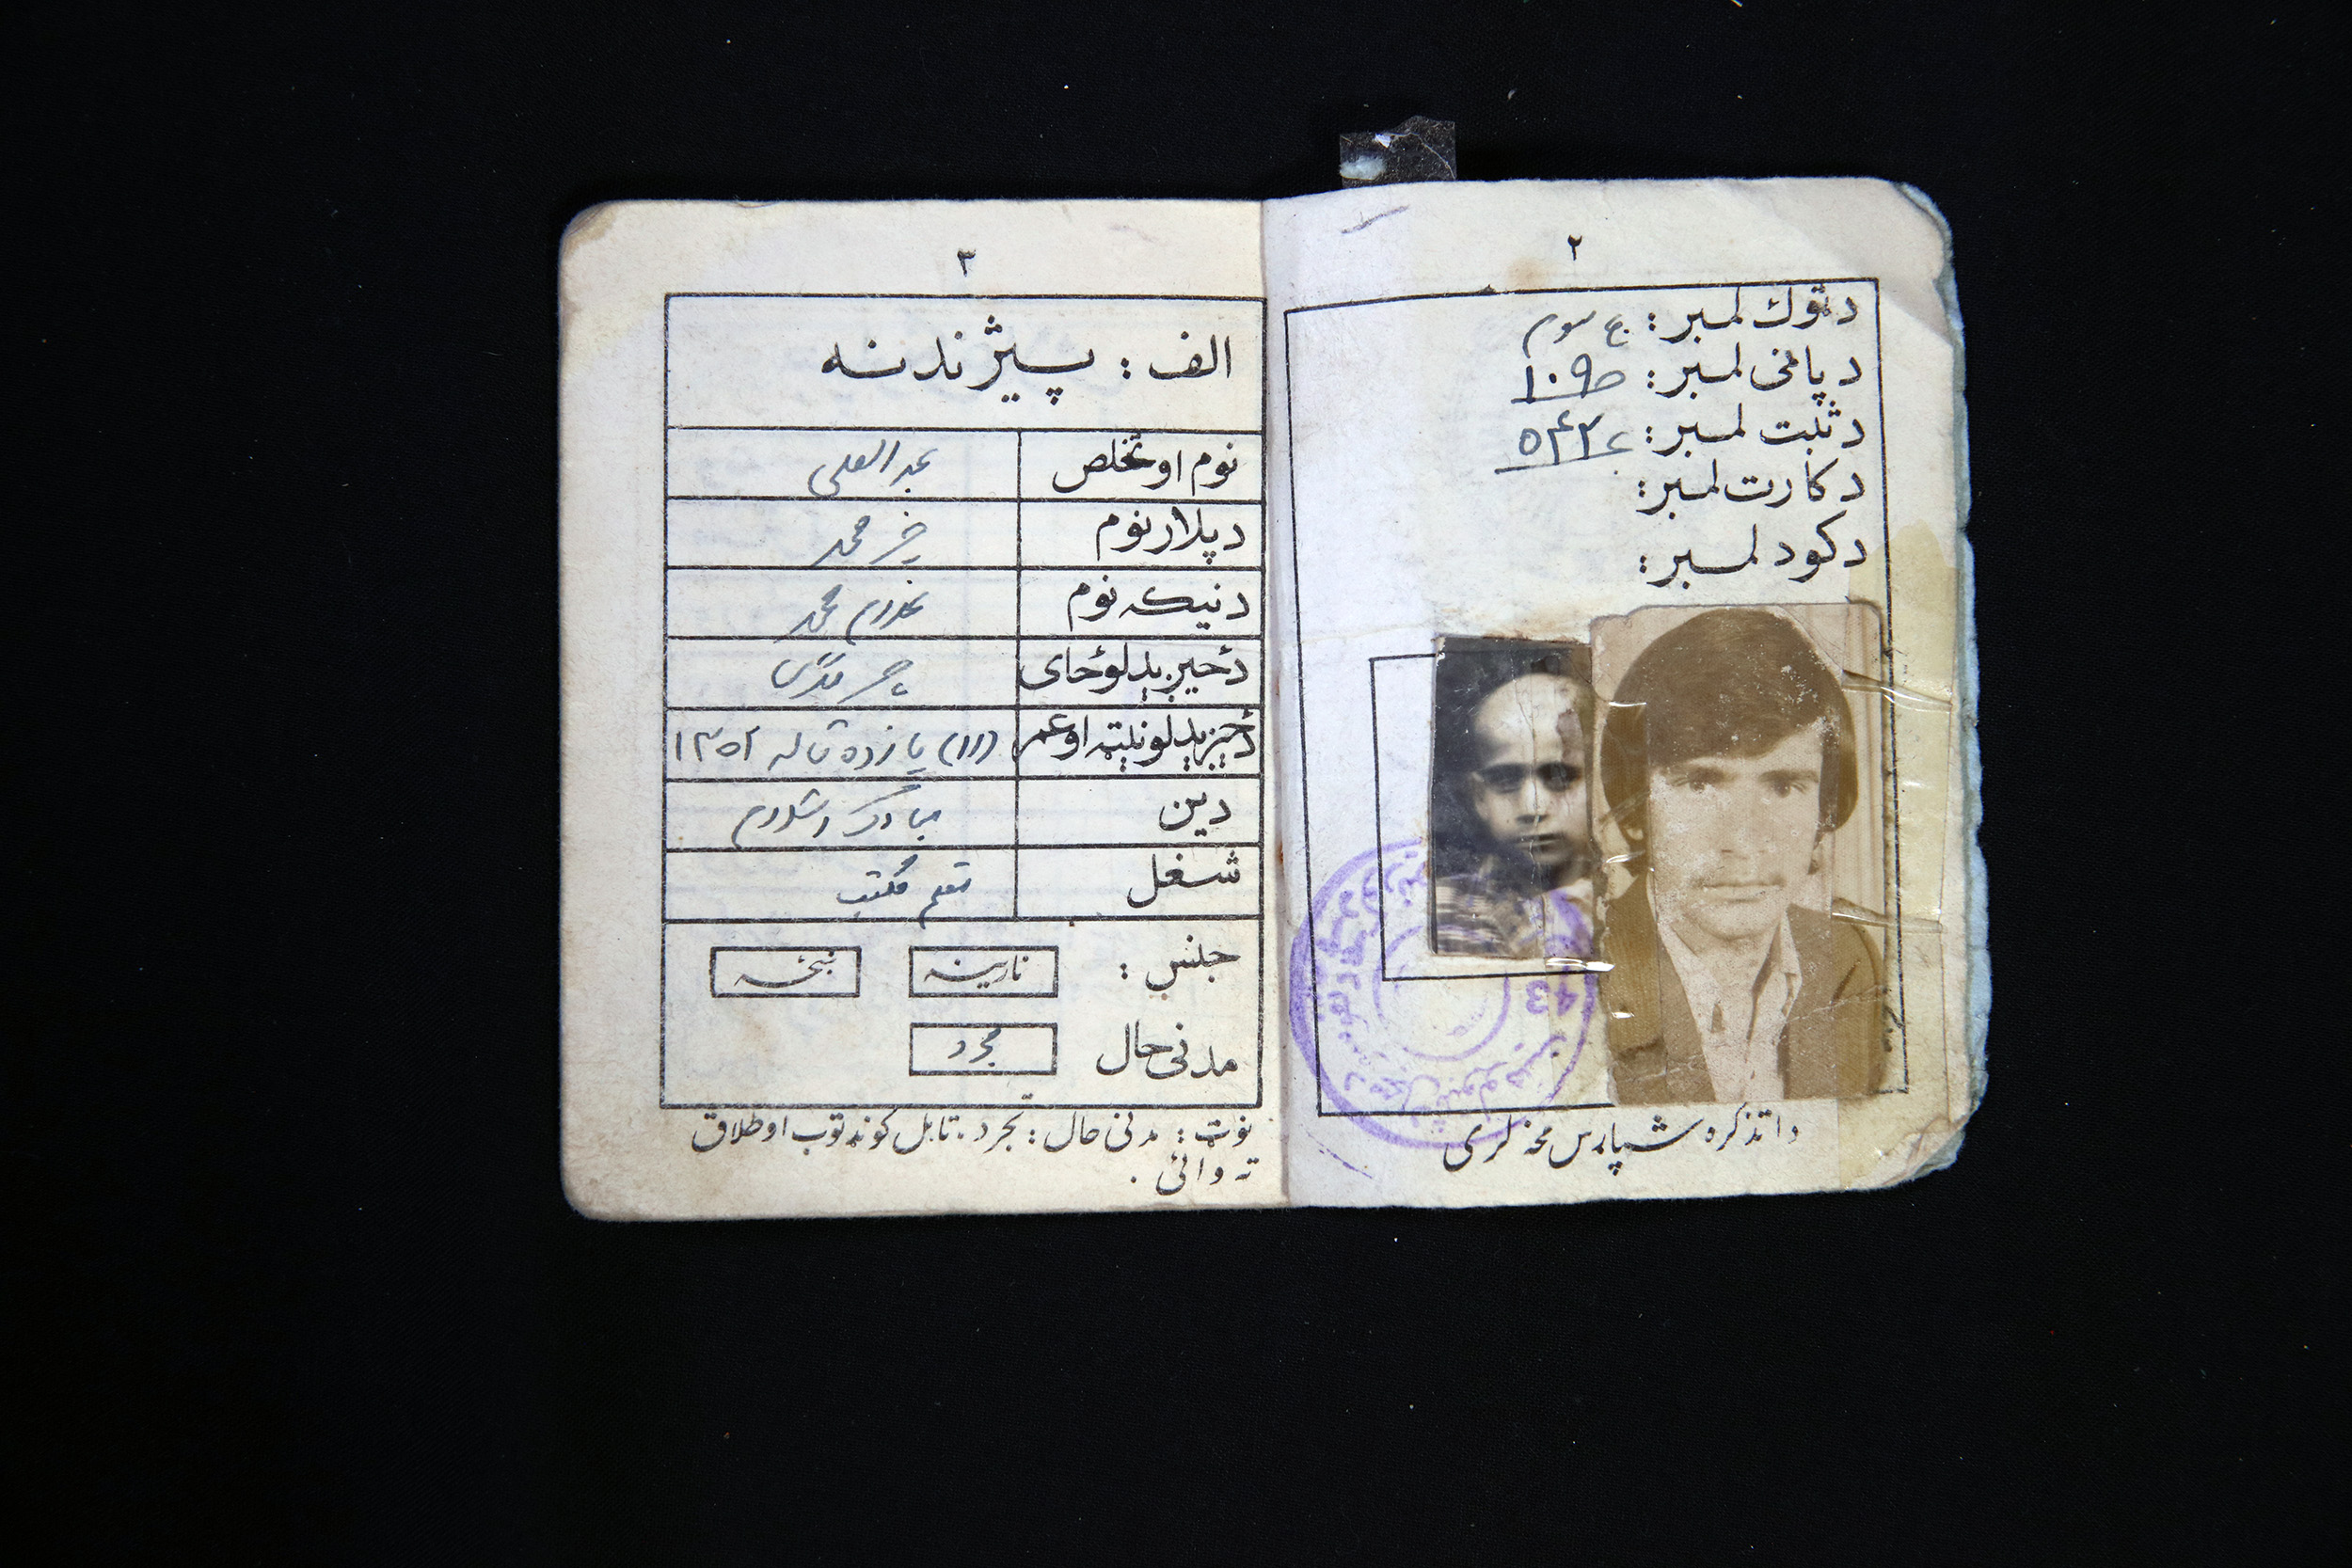 ۲
د ټوك لمبر: ج سوم
د پاڼی لمبر: ۱۰۹
د ثبت لمبر: ۵۴۲
د کارت لمبر:
د کود لمبر:
43
دا تذکره شپارس مخه لری
۳
الف: پیژندنه
نوم او تخلص عبدالعلی
د پلار نوم خیر محمد
د نیکه نوم غلام محمد
د ځیږیدلو ځای
د ځیږیدلو نیټه او عمر (۱۱) یازده ساله ۱۳۵۲
دین مبارک اسلام
شغل متعلم مکتب
جنس: نارینه ښځه
مدنی حال مجرد
نوټ: مدنی حال: مجرد، تاهل کونډتوب او طلاق
ته وائی.